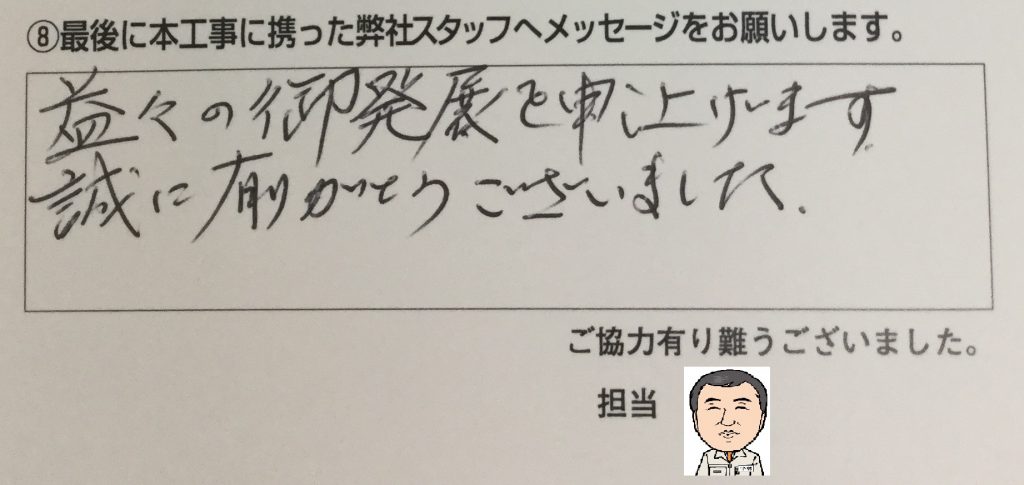 ⑧最後に本工事に携った弊社スタッフへメッセージをお願いします。
益々の御発展を申し上げます
誠に有りがとうございました.
ご協力有り難うございました。
担当